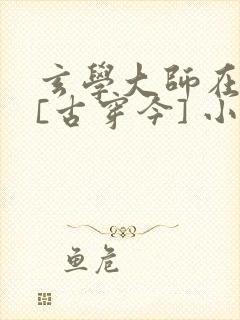 玄學大師在
[古穿今] 小
鱼危